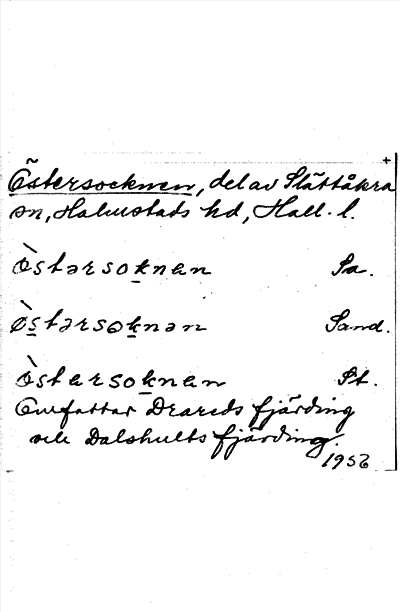 +
Östersocknen, del av Slättåkra
sn, Halmstads hd, Hall. l.
òstərsoknan Sa.
òstərsoknən Sand.
òstersoknen St.
Omfattar Drareds fjärding
och Dalshults fjärding.
1956